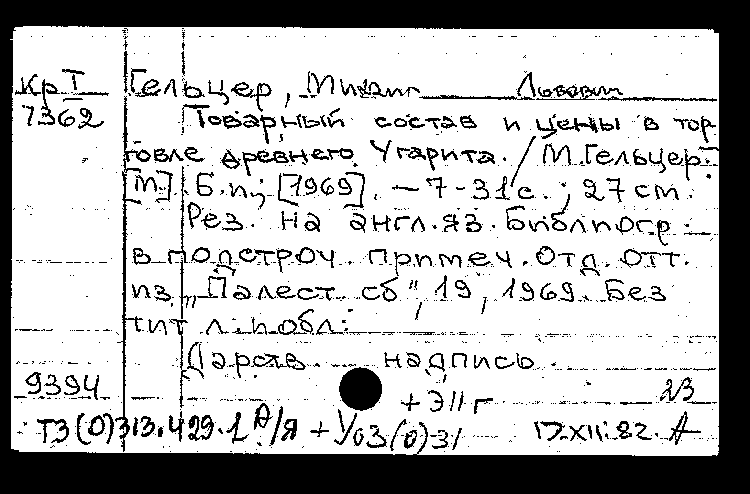 Кр Т Гельцер, Михаил Львович
7362 Товарный состав и цены в тор
говле древнего Угарита. / М. Гельцер.
[М]. Б.и., [1969]. — 7-31 с.; 27 см.
Рез. на англ. яз. Библиогр.
в подстроч. примеч. Отд. отт.
из „Палест. сб", 19, 1969. Без
тит. л. и обл.
Дарств. надпись.
9394 + ЭПГ 23
ТЗ(0)313.429.1 Я/Я + У03(0)31 17.XII.82. А